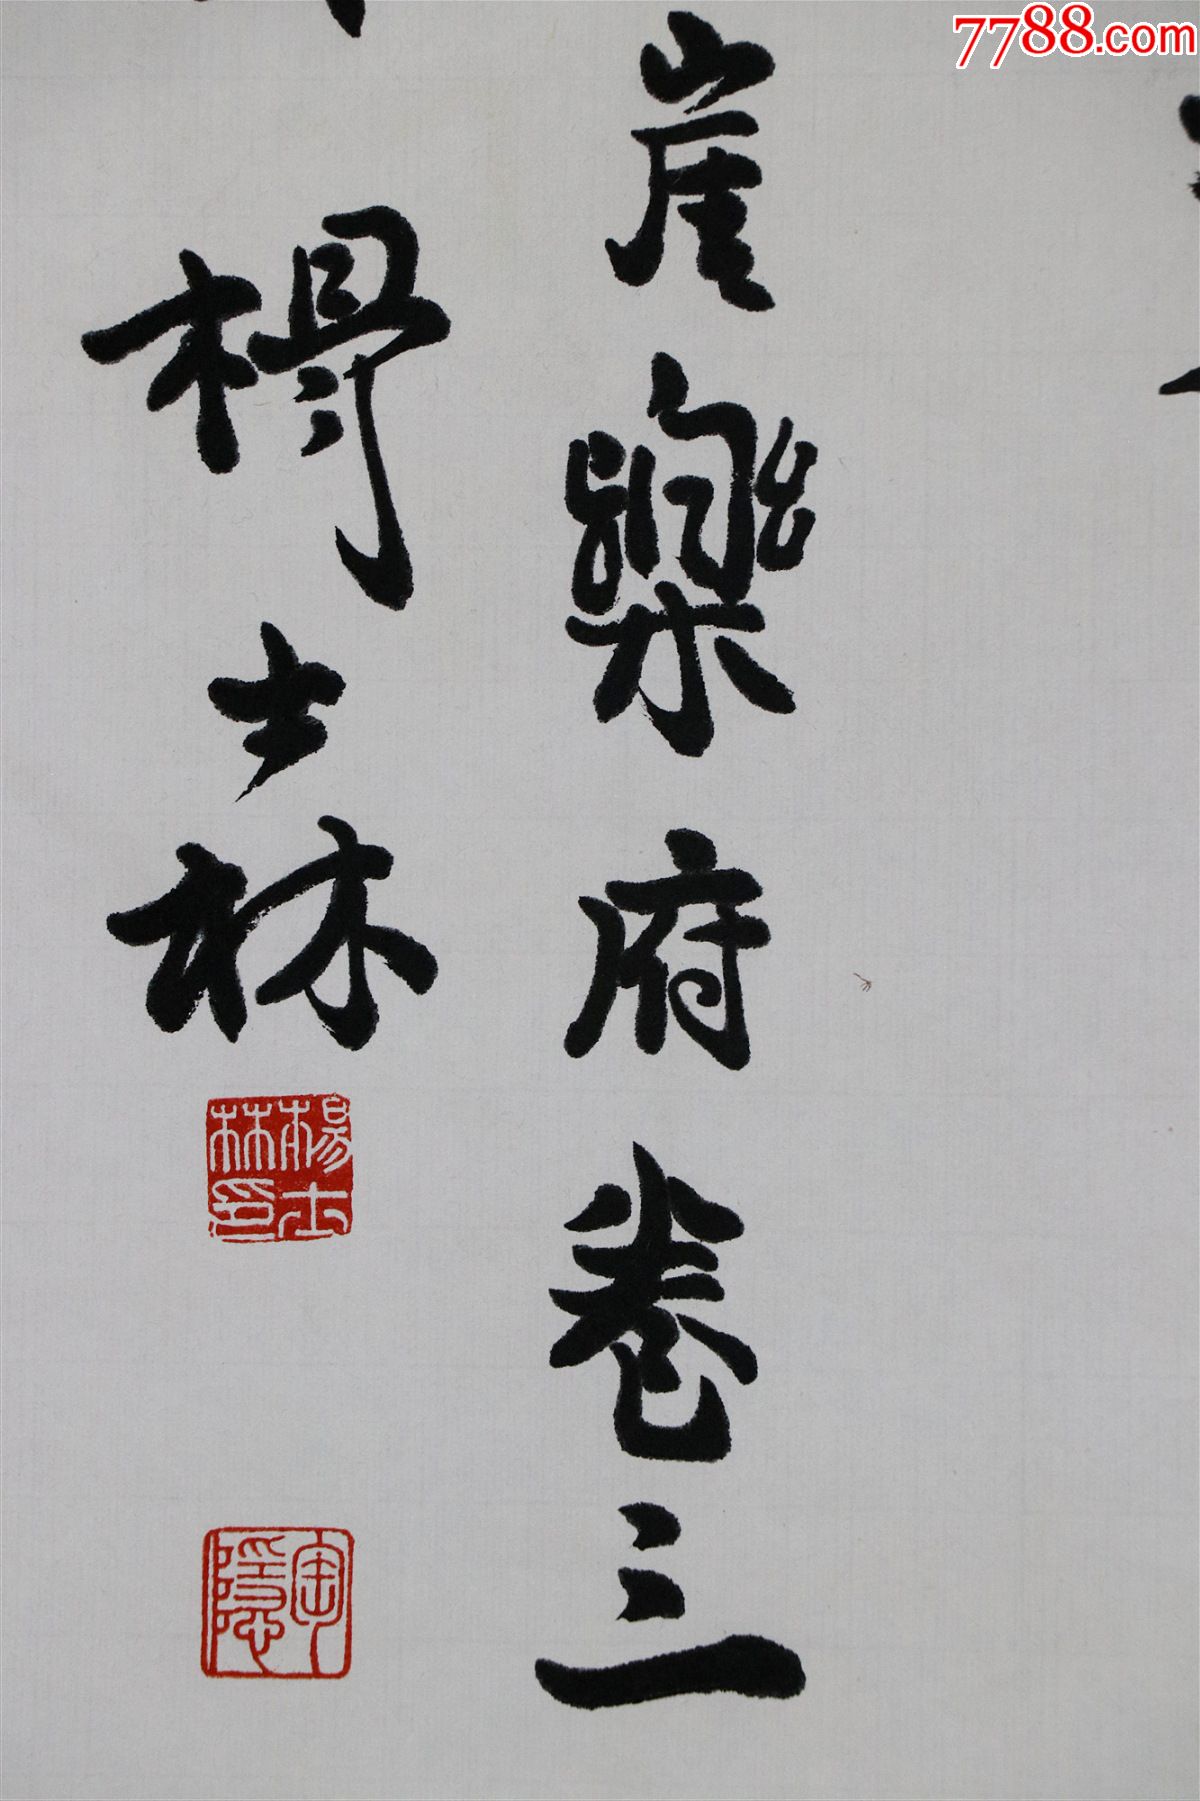 7788.com
崖樂府卷三
楊士林
楊士林印
陶隱